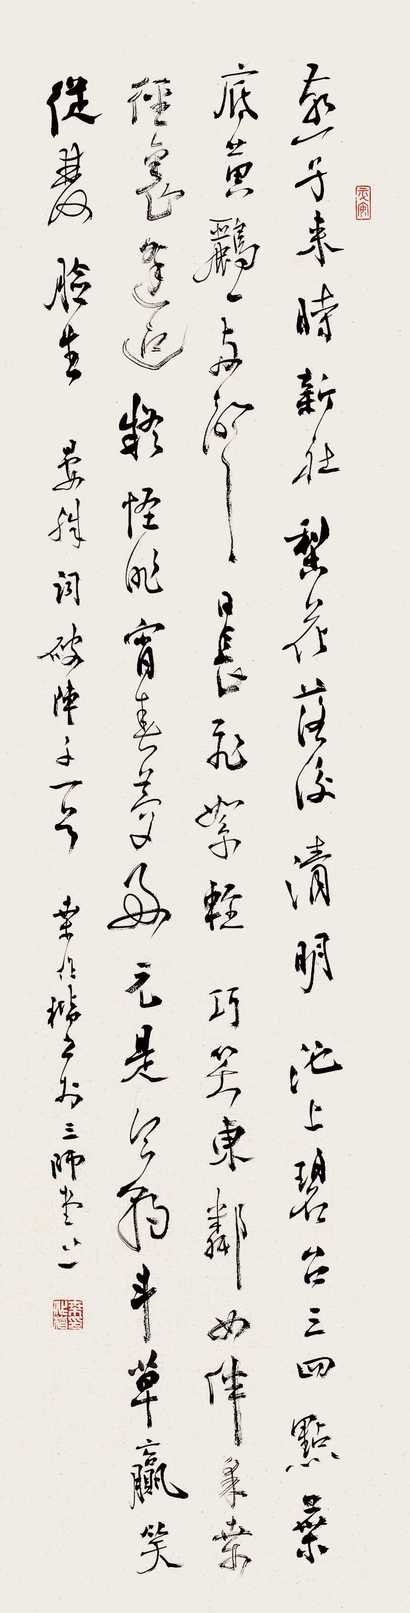 燕子来時新社梨花落後清明池上碧台三四點葉
底黄鸝一両聲日長飛絮輕巧笑東鄰女伴采桑
徑裏逢迎疑怪昨宵春夢好元是今朝鬥草贏笑
從雙臉生晏殊詞破陣子一首桑作楷書於三師堂